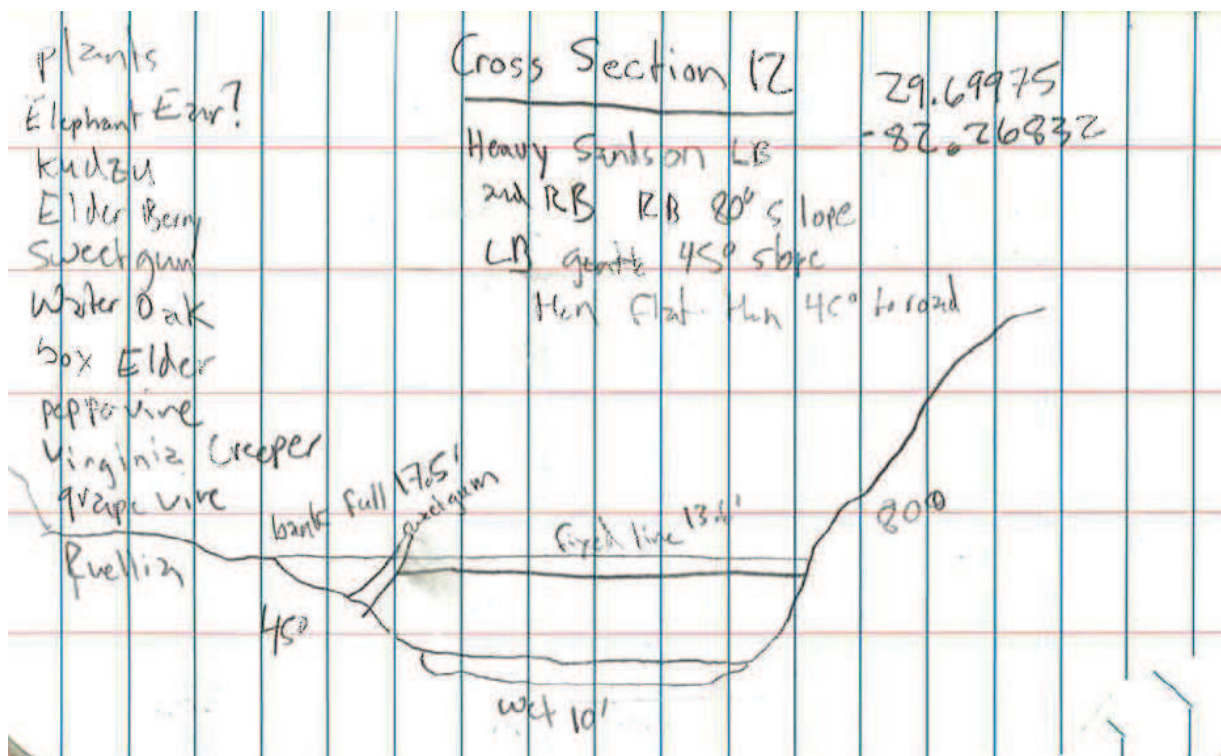 plants
Elephant Ear?
kudzu
Elder Berry
Sweetgum
Water Oak
box Elder
peppervine
Virginia Creeper
grape vine
Ruellia
Cross Section 12
29.69975
-82.26832
Heavy Sands on LB
and RB RB 80° slope
LB gentle 45° slope
then flat then 45° to road
bank full 17.5'
sweetgum
fixed line 13.6'
80°
45°
wet 10'